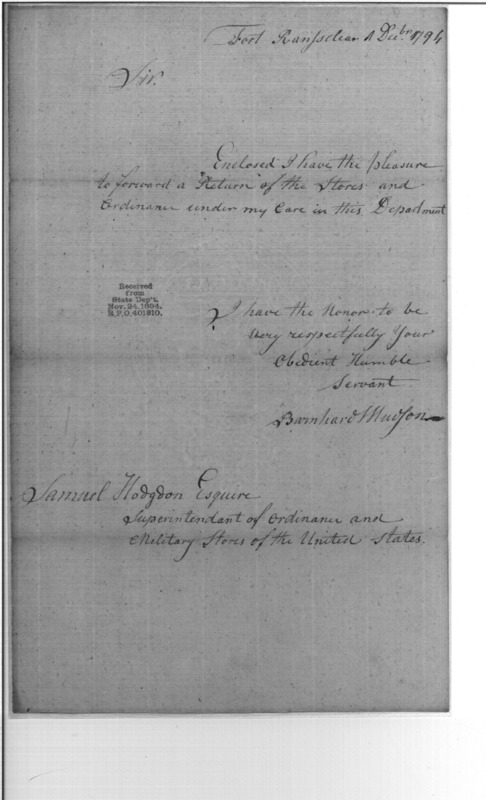 Fort Ransselear 1 Decbr 1794
Sir.
Enclosed I have the pleasure
to forward a Return of the Stores and
Ordinance under my Care in this Department
Received
from
State Dep't,
Nov. 24, 1894.
R.P.O. 401810.
I have the Honor to be
Very respectfully Your
Obedient Humble
Servant
Samuel Hodgdon Esquire
Superintendant of Ordinance and
Military Stores of the United States.